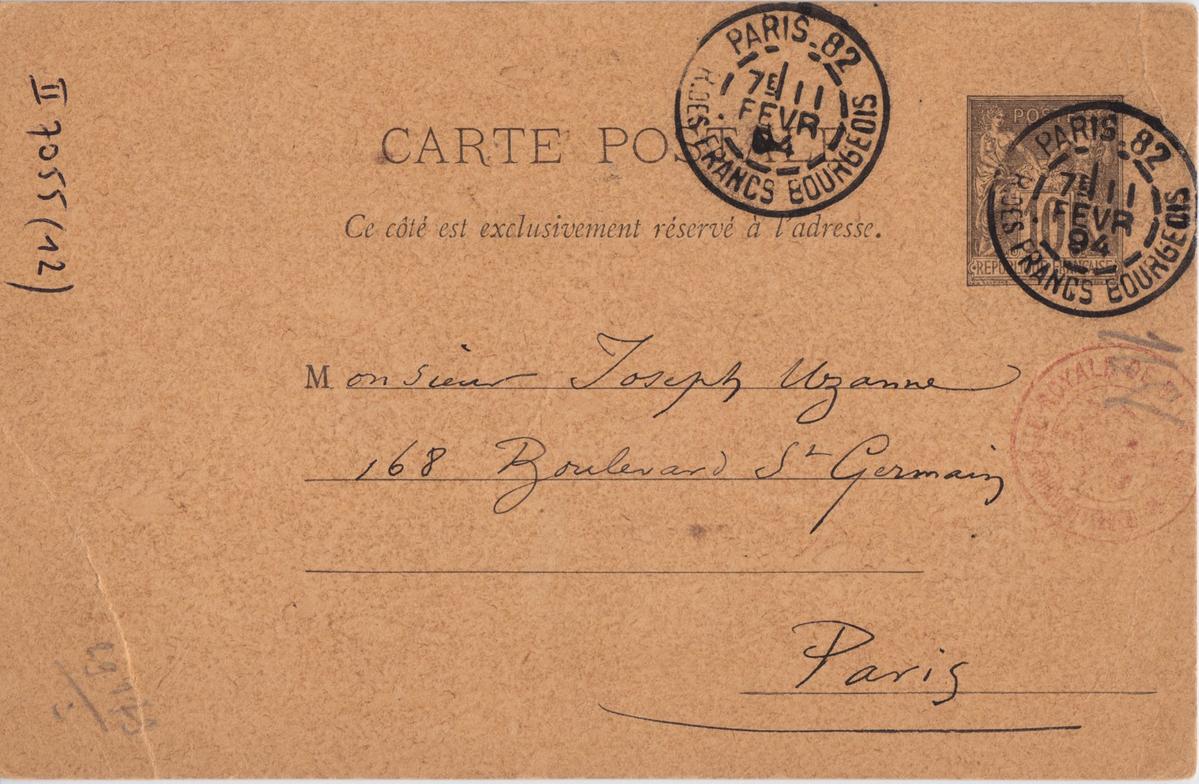 PARIS. 82
7E 11
FEVR
94
R. DES FRANCS BOURGEOIS
CARTE POSTALE
Ce côté est exclusivement réservé à l'adresse.
POSTES
10
REPUBLIQUE FRANÇAISE
PARIS. 82
7E 11
FEVR
94
R. DES FRANCS BOURGEOIS
II 7055 (12)
Monsieur Joseph Uzanne
168 Boulevard St Germain
Paris
ROYALE DE